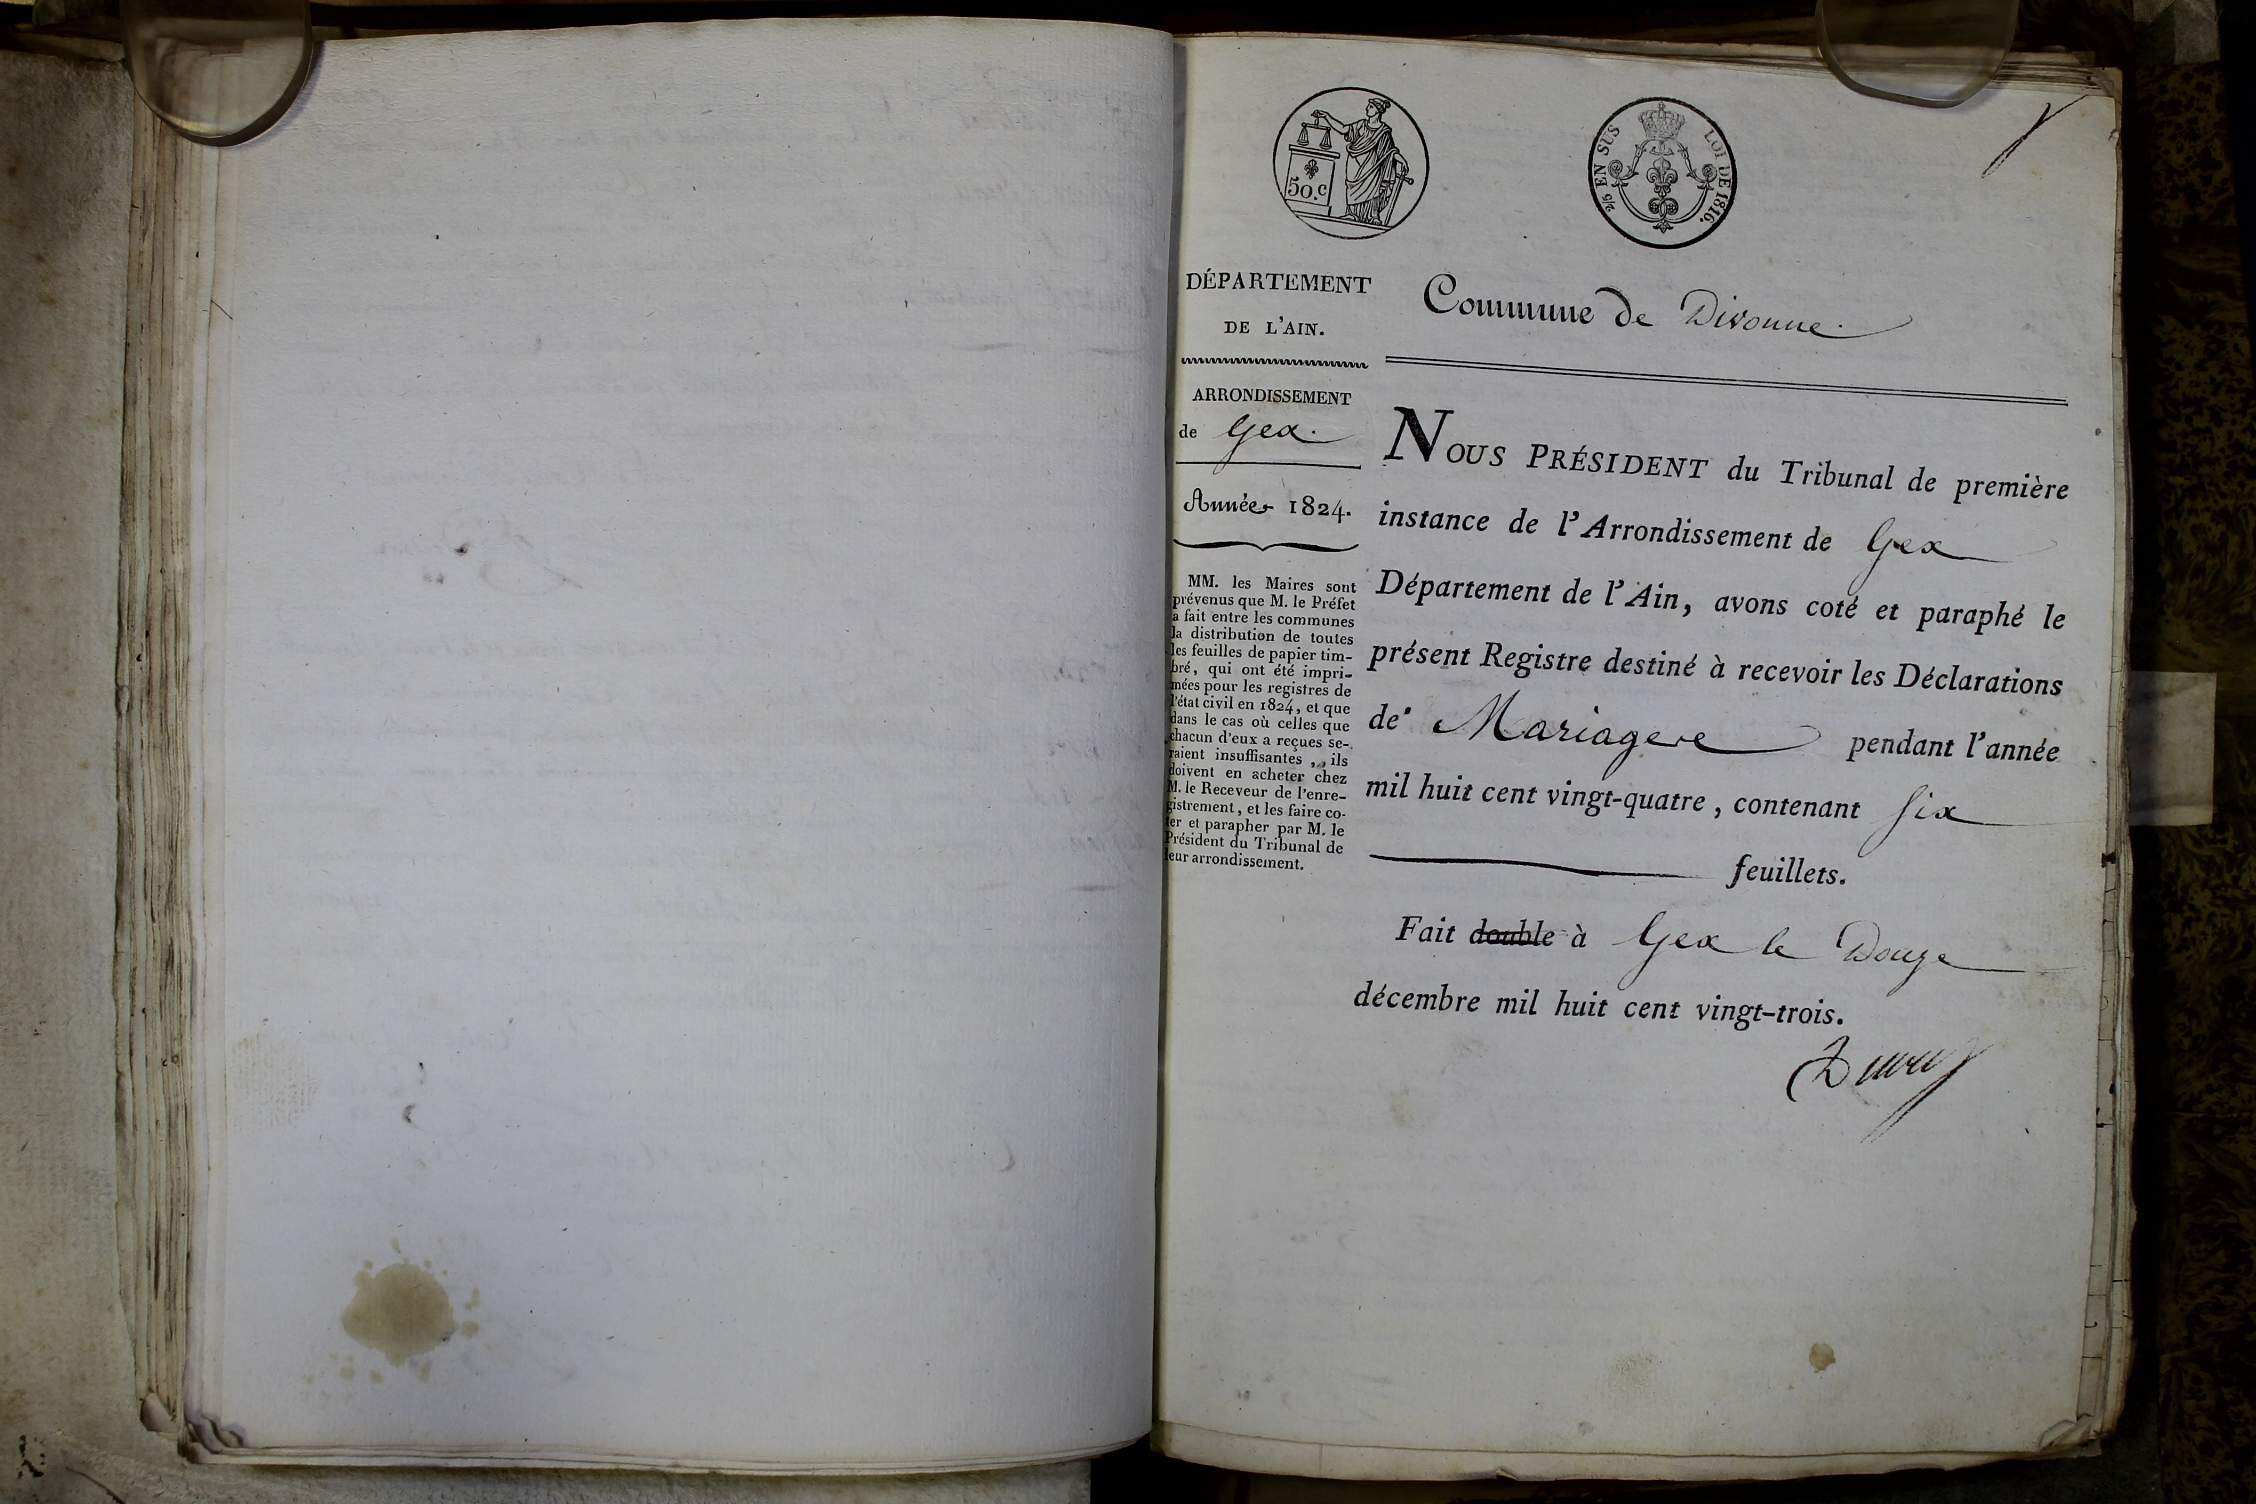 50.c
2/5 EN SUS LOI DE 1816.
DÉPARTEMENT
DE L'AIN.
Commune de Divonne.
ARRONDISSEMENT
de Gex.
Année 1824.
MM. les Maires sont
prévenus que M. le Préfet
a fait entre les communes
la distribution de toutes
les feuilles de papier tim-
bré, qui ont été impri-
mées pour les registres de
l'état civil en 1824, et que
dans le cas où celles que
chacun d'eux a reçues se-
raient insuffisantes, ils
doivent en acheter chez
M. le Receveur de l'enre-
gistrement, et les faire co-
ter et parapher par M. le
Président du Tribunal de
leur arrondissement.
NOUS PRÉSIDENT du Tribunal de première
instance de l'Arrondissement de Gex
Département de l'Ain, avons coté et paraphé le
présent Registre destiné à recevoir les Déclarations
de Mariages pendant l'année
mil huit cent vingt-quatre, contenant Six
feuillets.
Fait double à Gex le Douze
décembre mil huit cent vingt-trois.